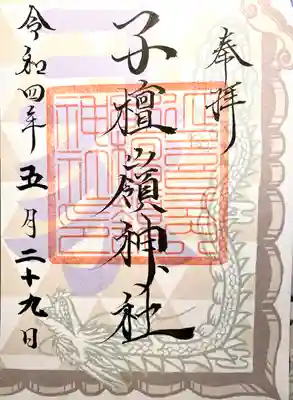 奉拝
子檀嶺神社
令和四年五月二十九日